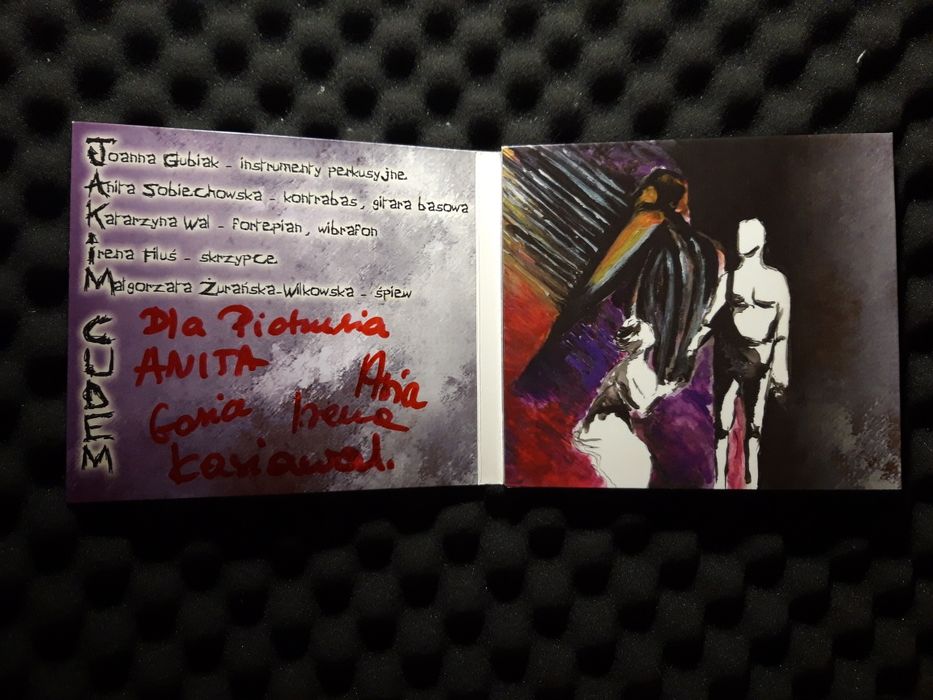 Joanna Gubiak - instrumenty perkusyjne
Anita Sobiechowska - kontrabas, gitara basowa
Katarzyna Wal - fortepian, wibrafon
Irena Filuś - skrzypce
Małgorzata Żurańska-Wilkowska - śpiew
JAKIM
CUDEM
Dla Piotrusia
ANITA
Asia
Gosia
Irena
Kasiawal.